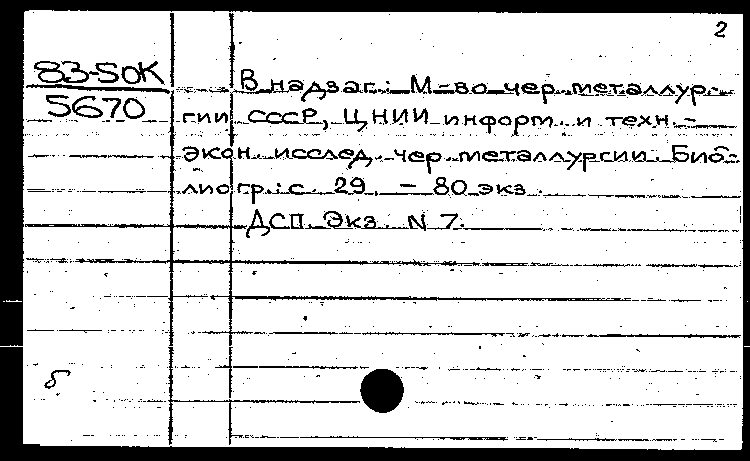 2
83-5ок
5670
В надзаг.: М-во чер. металлур-
гии СССР, ЦНИИ информ. и техн.-
экон. исслед. чер. металлургии. Биб-
лиогр.: с. 29. – 80 экз.
ДСП. Экз. N 7.
б